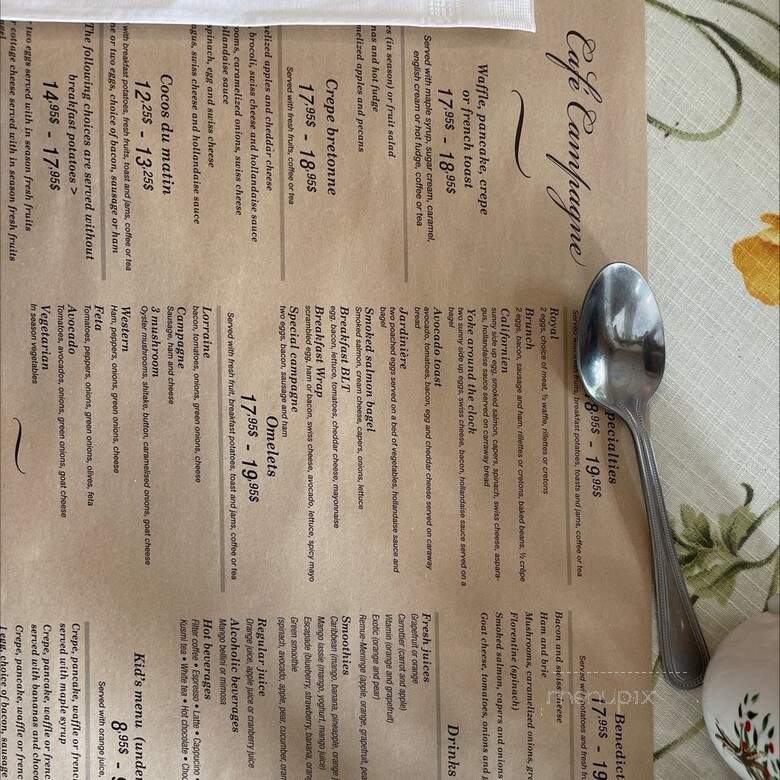 Café Campagne
Waffle, pancake, crepe
or french toast
17.95$ - 18.95$
Served with maple syrup, sugar cream, caramel,
english cream or hot fudge, coffee or tea
es (in season) or fruit salad
nas and hot fudge
melized apples and pecans
Crepe bretonne
17.95$ - 18.95$
Served with fresh fruits, coffee or tea
melized apples and cheddar cheese
broccoli, swiss cheese and hollandaise sauce
ooms, caramelized onions, swiss cheese
ollandaise sauce
spinach, egg and swiss cheese
agus, swiss cheese and hollandaise sauce
Cocos du matin
12.25$ - 13.25$
with breakfast potatoes, fresh fruits, toast and jams, coffee or tea
ne or two eggs, choice of bacon, sausage or ham
The following choices are served without
breakfast potatoes >
14.95$ - 17.95$
two eggs served with in season fresh fruits
cottage cheese served with in season fresh fruits
pecialties
8.95$ - 19.95$
Served with fresh fruits, breakfast potatoes, toasts and jams, coffee or tea
Royal
2 eggs, choice of meat, ½ waffle, rillettes or cretons
Brunch
2 eggs, bacon, sausage and ham, rillettes or cretons, baked beans, ½ crêpe
Californien
sunny side up egg, smoked salmon, capers, spinach, swiss cheese, aspara-
gus, hollandaise sauce served on carraway bread
Yoke around the clock
two sunny side up eggs, swiss cheese, bacon, hollandaise sauce served on a
bagel
Avocado toast
avocado, tomatoes, bacon, egg and cheddar cheese served on caraway
bread
Jardinière
two poached eggs served on a bed of vegetables, hollandaise sauce and
bagel
Smoked salmon bagel
Smoked salmon, cream cheese, capers, onions, lettuce
Breakfast BLT
egg, bacon, lettuce, tomatoes, cheddar cheese, mayonnaise
Breakfast Wrap
scrambled egg, ham or bacon, swiss cheese, avocado, lettuce, spicy mayo
Special campagne
two eggs, bacon, sausage and ham
Omelets
17.95$ - 19.95$
Served with fresh fruit, breakfast potatoes, toast and jams, coffee or tea
Lorraine
bacon, tomatoes, onions, green onions, cheese
Campagne
Sausage, ham and cheese
3 mushroom
Oyster mushrooms, shitake, button, caramelised onions, goat cheese
Western
Ham, peppers, onions, green onions, cheese
Feta
Tomatoes, peppers, onions, green onions, olives, feta
Avocado
Tomatoes, avocados, onions, green onions, goat cheese
Vegetarian
In season vegetables
Benedict
17.95$ - 19
Served with potatoes and fresh fr
Bacon and swiss cheese
Ham and brie
Mushrooms, caramelized onions, gre
Florentine (spinach)
Smoked salmon, capers and onions
Goat cheese, tomatoes, onions and
Drinks
Fresh juices
Grapefruit or orange
Carrottier (carrot and apple)
Vitamin (orange and grapefruit)
Exotic (orange and pear)
Remue-Meninge (apple, orange, grapefruit, pea
Smoothies
Caribbean (mango, banana, pineapple, orange
Mango lassie (mango, yoghurt, mango juice)
Escapade (blueberry, strawberry, banana, oran
Green smoothie
(spinach, avocado, apple, pear, cucumber, oran
Regular juice
Orange juice, apple juice or cranberry juice
Alcoholic beverages
Mango bellini or mimosa
Hot beverages
Filter coffee • Espresso • Latte • Cappucino •
Kusmi tea • White tea • Hot chocolate • Choc
Kid's menu (under
8.95$ -
Served with orange juice,
Crepe, pancake, waffle or frenc
served with maple syrup
Crepe, pancake, waffle or frenc
served with bananas and choco
Crepe, pancake, waffle or frenc
1 egg, choice of bacon, sausage
menupix